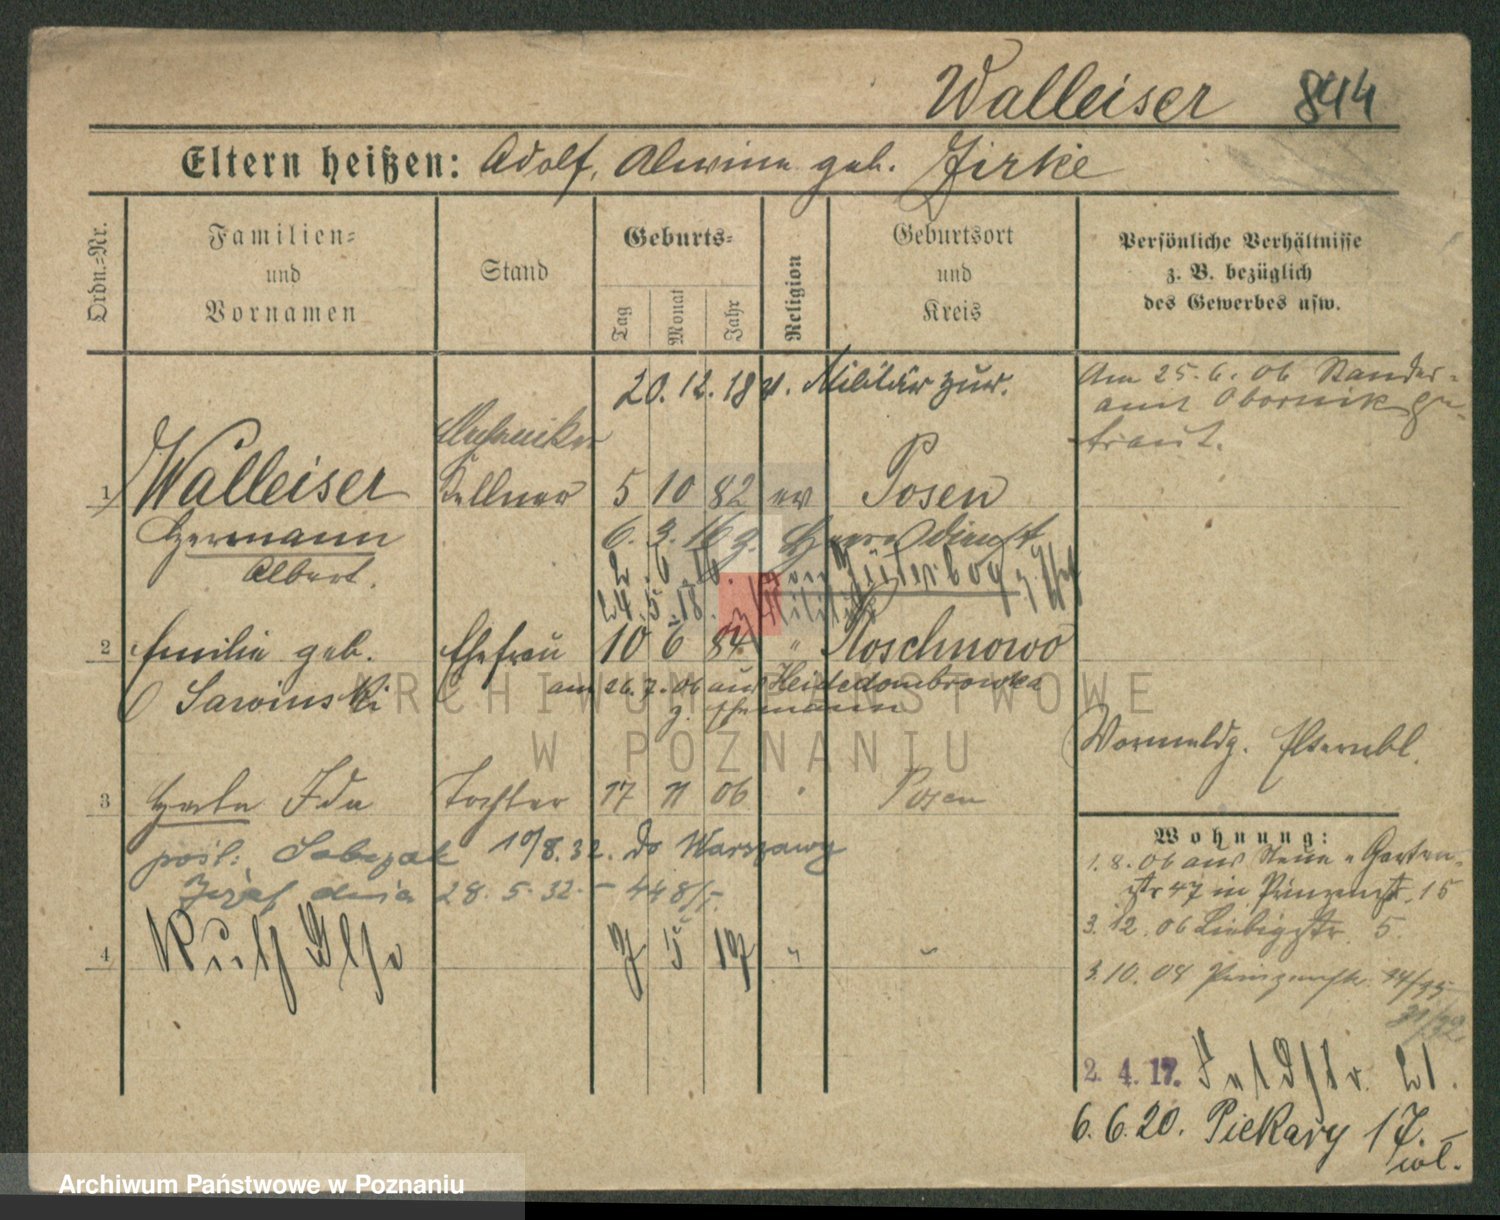 Walleiser 844
Eltern heißen: Adolf, Alwine geb. Zirke
Ordn.-Nr.
Familien-
und
Vornamen
Stand
Geburts-
Tag Monat Jahr
Religion
Geburtsort
und
Kreis
Persönliche Verhältnisse
z. B. bezüglich
des Gewerbes usw.
20. 12. 18 v. Militär zur.
Am 25. 6. 06 Standes-
amt Obornik ge-
traut.
Mechaniker
1 Walleiser Kellner 5 10 82 ev Posen
Hermann
Albert.
6. 3. 16 z. Heeresdienst
2. 6. 16. von Jüterbog z.
24. 5. 18. z. Militär
2 Emilie geb. Ehefrau 10 6 84 " Roschnowo
Sarwinski
am 26. 7. 06 aus Heidedombrowka
z. Ehemann
Vormeldg. Elternbl.
3 Herta Ida Tochter 17 11 06 " Posen
posł: Sobczak 10/8. 32. do Warszawy
Józef dnia 28. 5. 32. – 448/
4 Ruth Else 7 5 17 " "
Wohnung:
1. 8. 06 aus Neue Garten-
str 47 in Prinzenstr. 15
3. 12. 06 Liebigstr. 5.
3. 10. 08 Prinzenstr. 94/95
31/32
2. 4. 17. Feldstr. 21.
6. 6. 20. Piekary 17.
wł.
ARCHIWUM PAŃSTWOWE
W POZNANIU
Archiwum Państwowe w Poznaniu